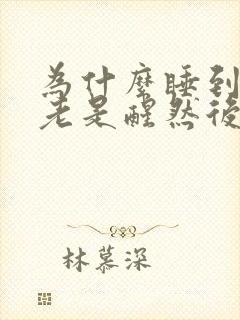 為什麼睡到
老是醒然後
林慕深